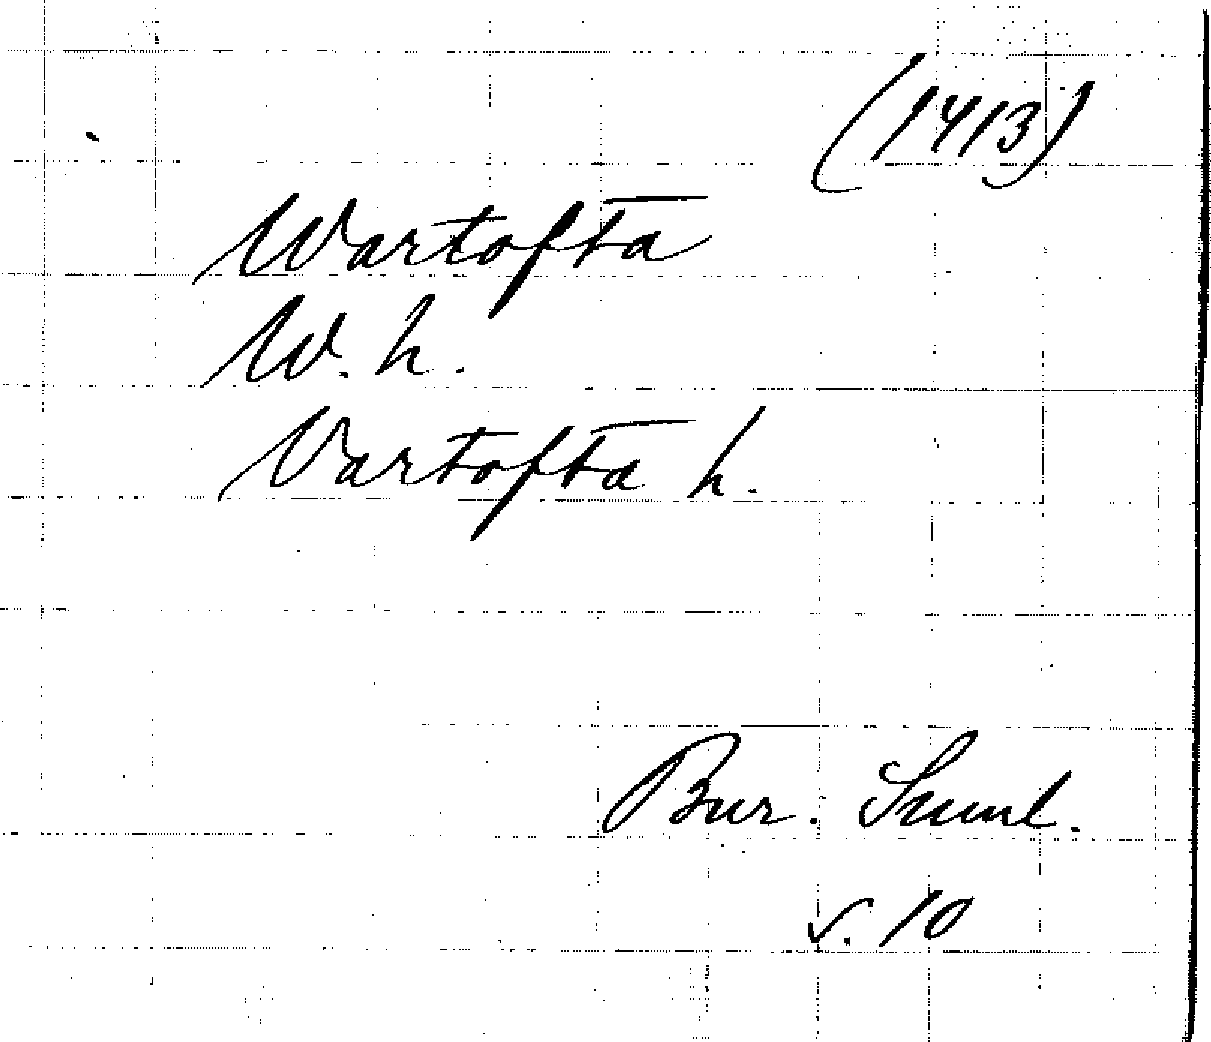 (1413)
Wartofta
W. h.
Vartofta h.
Bur. Suml.
s. 10